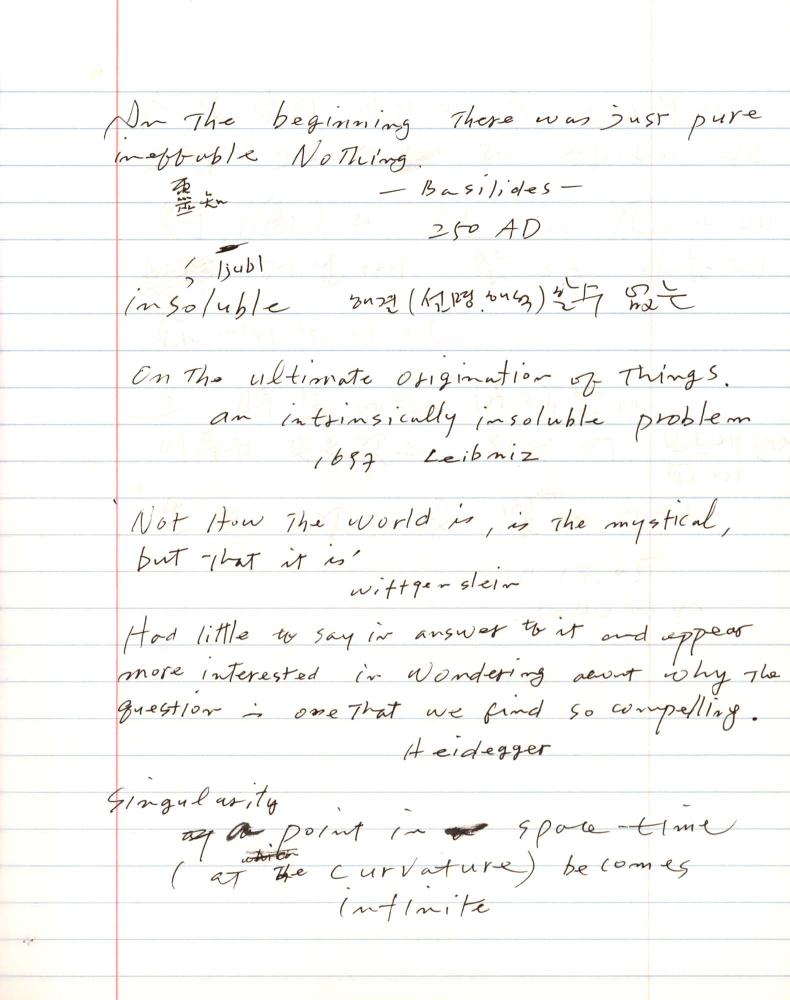 In the beginning there was just pure
ineffable Nothing.
靈知 — Basilides —
250 AD
ljubl
insoluble 해결 (설명.해석)할수 없는
On the ultimate origination of things.
an intrinsically insoluble problem
1697 Leibniz
Not How the world is, is the mystical,
but that it is'
wittgenslein
Had little to say in answer to it and appear
more interested in wondering about why the
question is one that we find so compelling.
Heidegger
Singularity
a point in space-time
(at the curvature) becomes
infinite